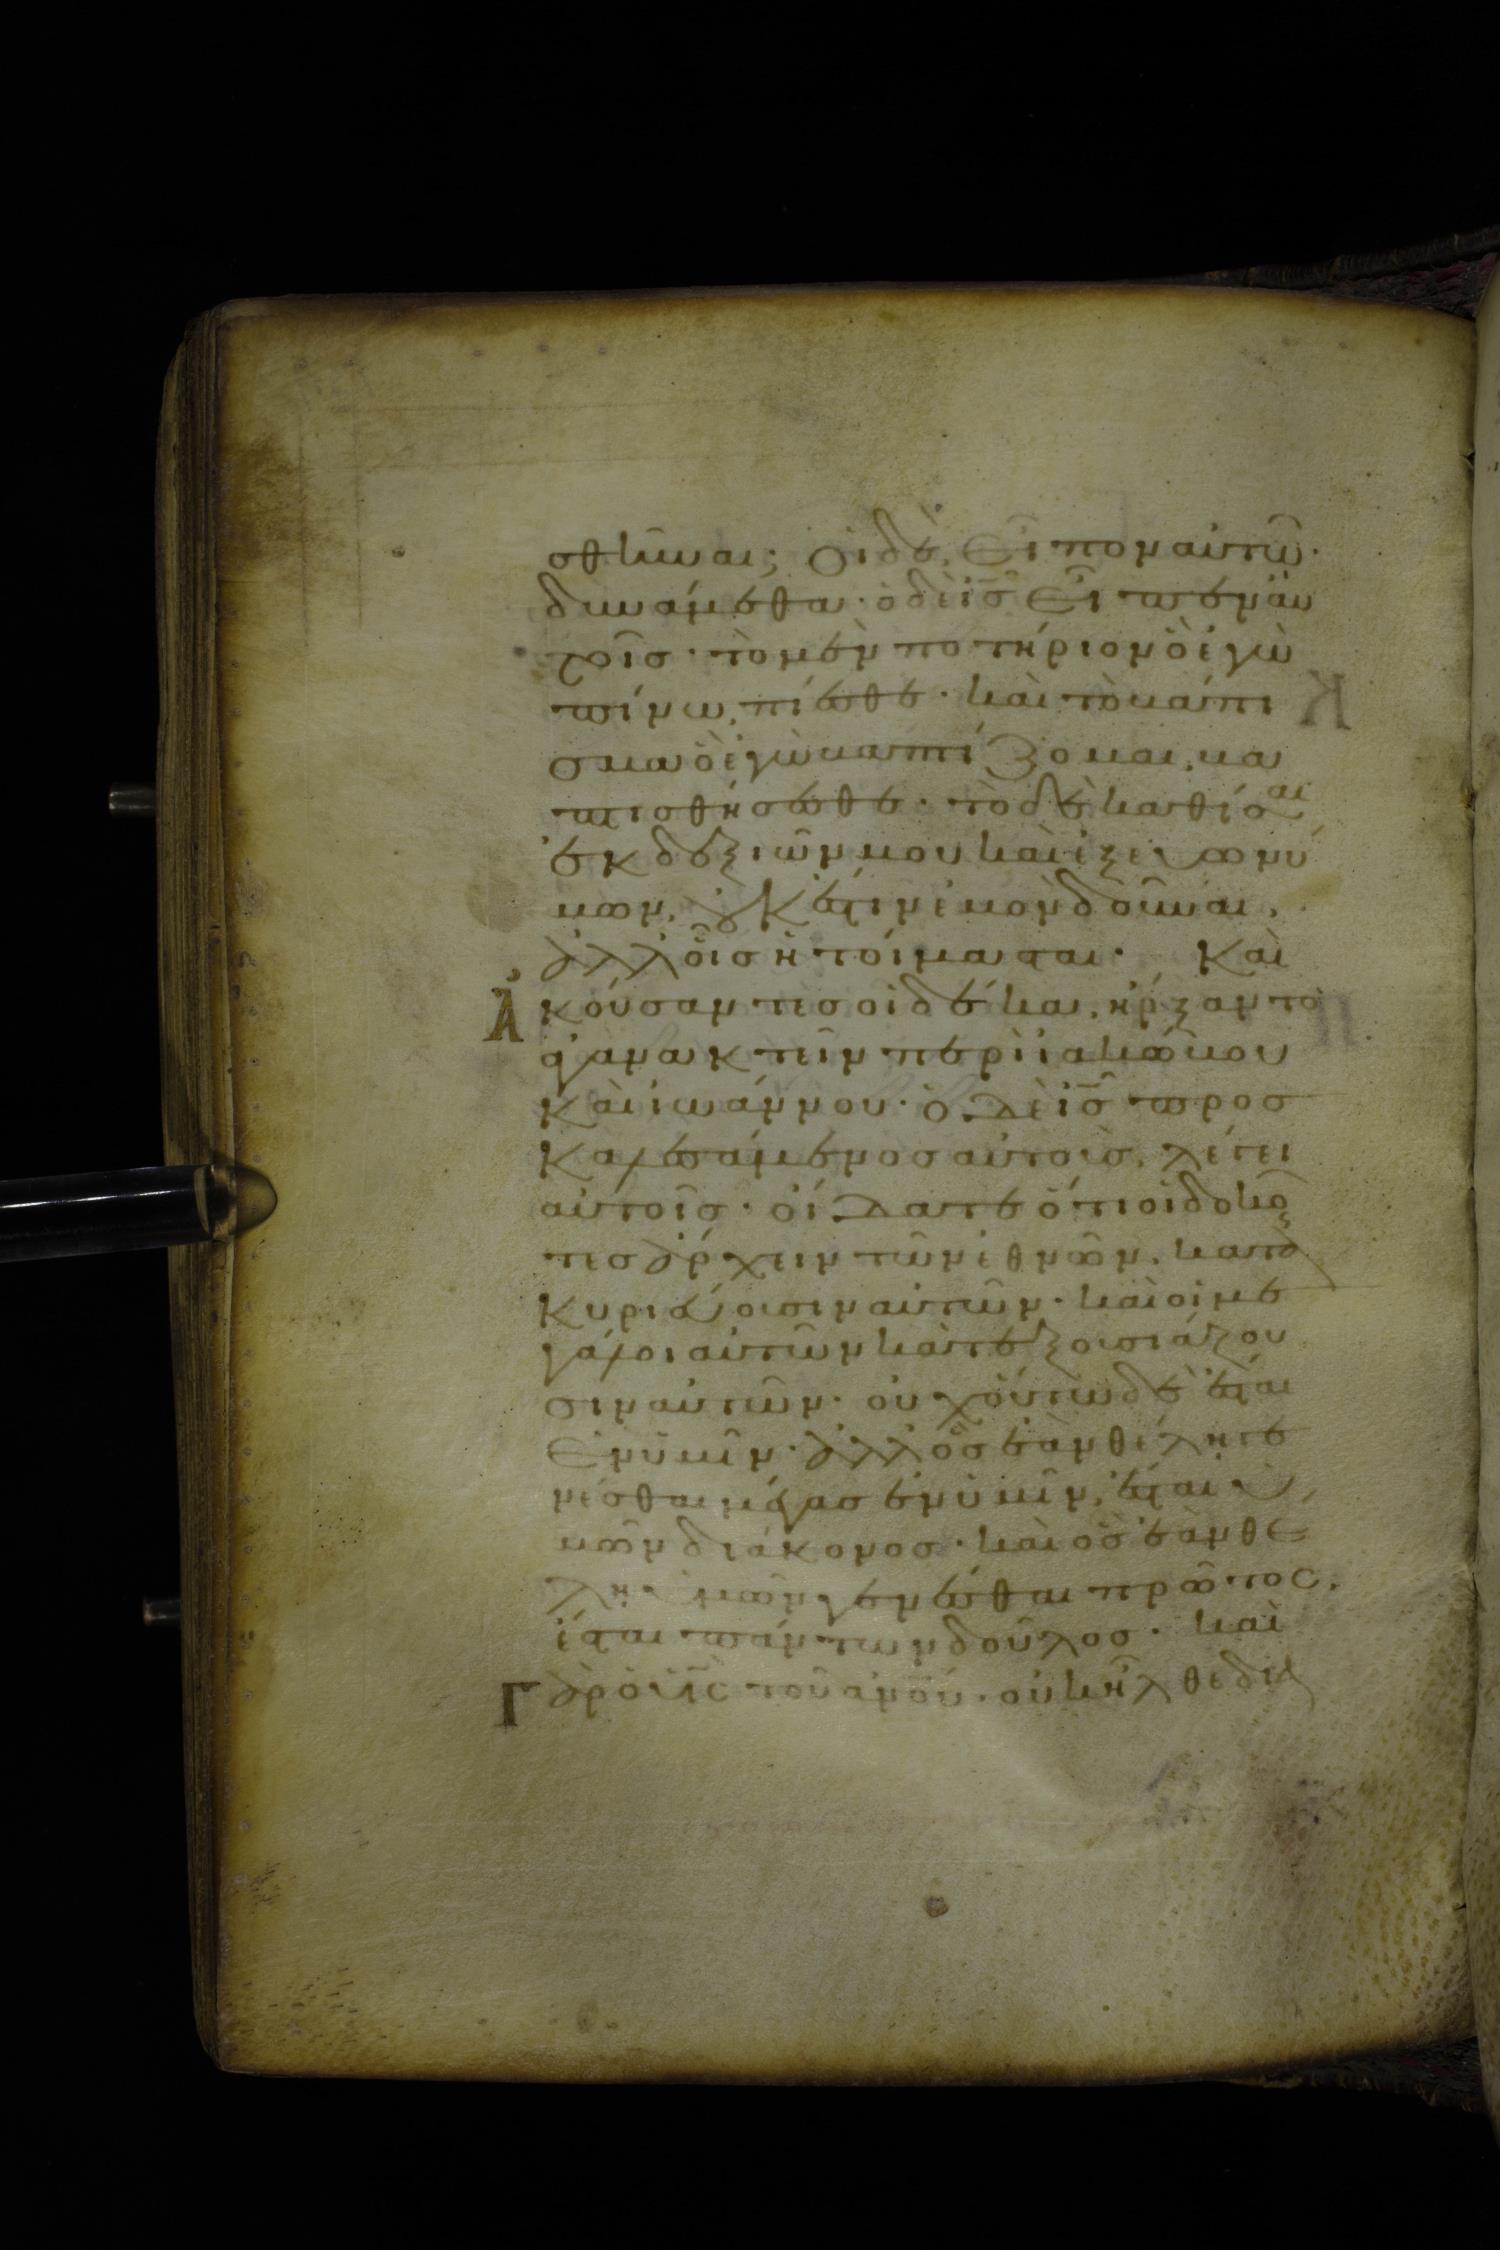 σθῆναι; Οἱ δὲ, εἶπον αὐτῶ·
δυνάμεθα· ὁ δὲ ις εἶπεν αὐ
τοῖς· τὸ μὲν ποτήριον ὃ ἐγὼ
πίνω, πίεσθε· καὶ τὸ βάπτι
σμα ὃ ἐγὼ βαπτίζομαι, βα
πτισθήσεσθε· τὸ δὲ καθίσαι
ἐκ δεξιῶν μου καὶ ἐξ εὐωνύ
μων, οὐκ ἔστιν ἐμὸν δοῦναι,
ἀλλ οἷς ἡτοίμασται· Καὶ
Ἀκούσαντες οἱ δέκα, ἤρξαντο
ἀγανακτεῖν περὶ ἰακώβου
καὶ ἰωάννου· ὁ δὲ ις προσ
καλεσάμενος αὐτοὺς, λέγει
αὐτοῖς· οἴδατε ὅτι οἱ δοκοῦν
τες ἄρχειν τῶν ἐθνῶν, κατα
κυριεύουσιν αὐτῶν· καὶ οἱ με
γάλοι αὐτῶν κατεξουσιάζου
σιν αὐτῶν· οὐχ οὕτω δὲ ἔσται
ἐν ὑμῖν· ἀλλ ὃς ἐὰν θέλῃ γε
νέσθαι μέγας ἐν ὑμῖν, ἔσται ὑ
μῶν διάκονος· καὶ ὃς ἐὰν θέ
λῃ ὑμῶν γενέσθαι πρῶτος,
ἔσται πάντων δοῦλος· καὶ
Γὰρ ὁ υἱς τοῦ ανου· οὐκ ἦλθε δια